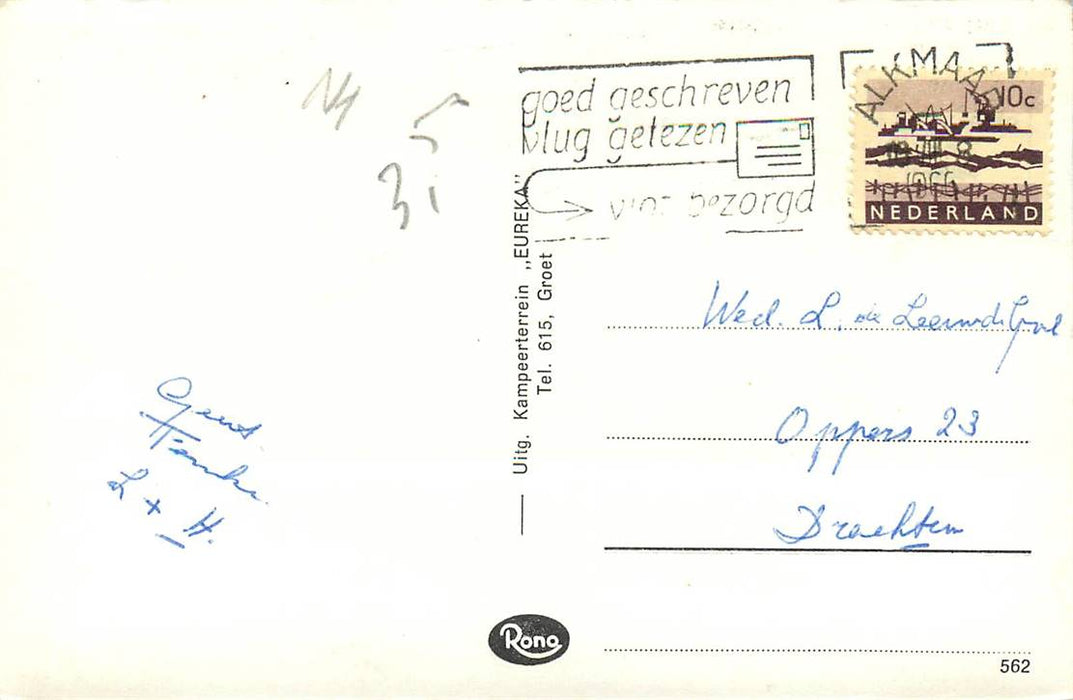 14
5
31
goed geschreven
vlug gelezen
vlot bezorgd
ALKMAAR
1966
10c
NEDERLAND
Uitg. Kampeerterrein „EUREKA”
Tel. 615, Groet
Wed. L. de
Oppers 23
Drachten
Geert
L + H.
Rono
562